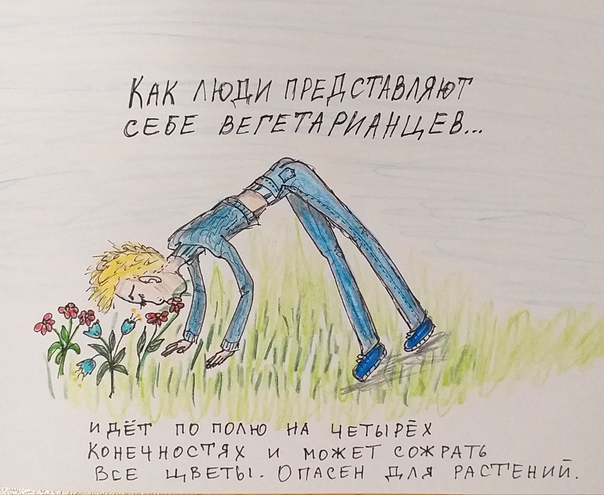 КАК ЛЮДИ ПРЕДСТАВЛЯЮТ
СЕБЕ ВЕГЕТАРИАНЦЕВ...
ИДЁТ ПО ПОЛЮ НА ЧЕТЫРЁХ
КОНЕЧНОСТЯХ И МОЖЕТ СОЖРАТЬ
ВСЕ ЦВЕТЫ. ОПАСЕН ДЛЯ РАСТЕНИЙ.